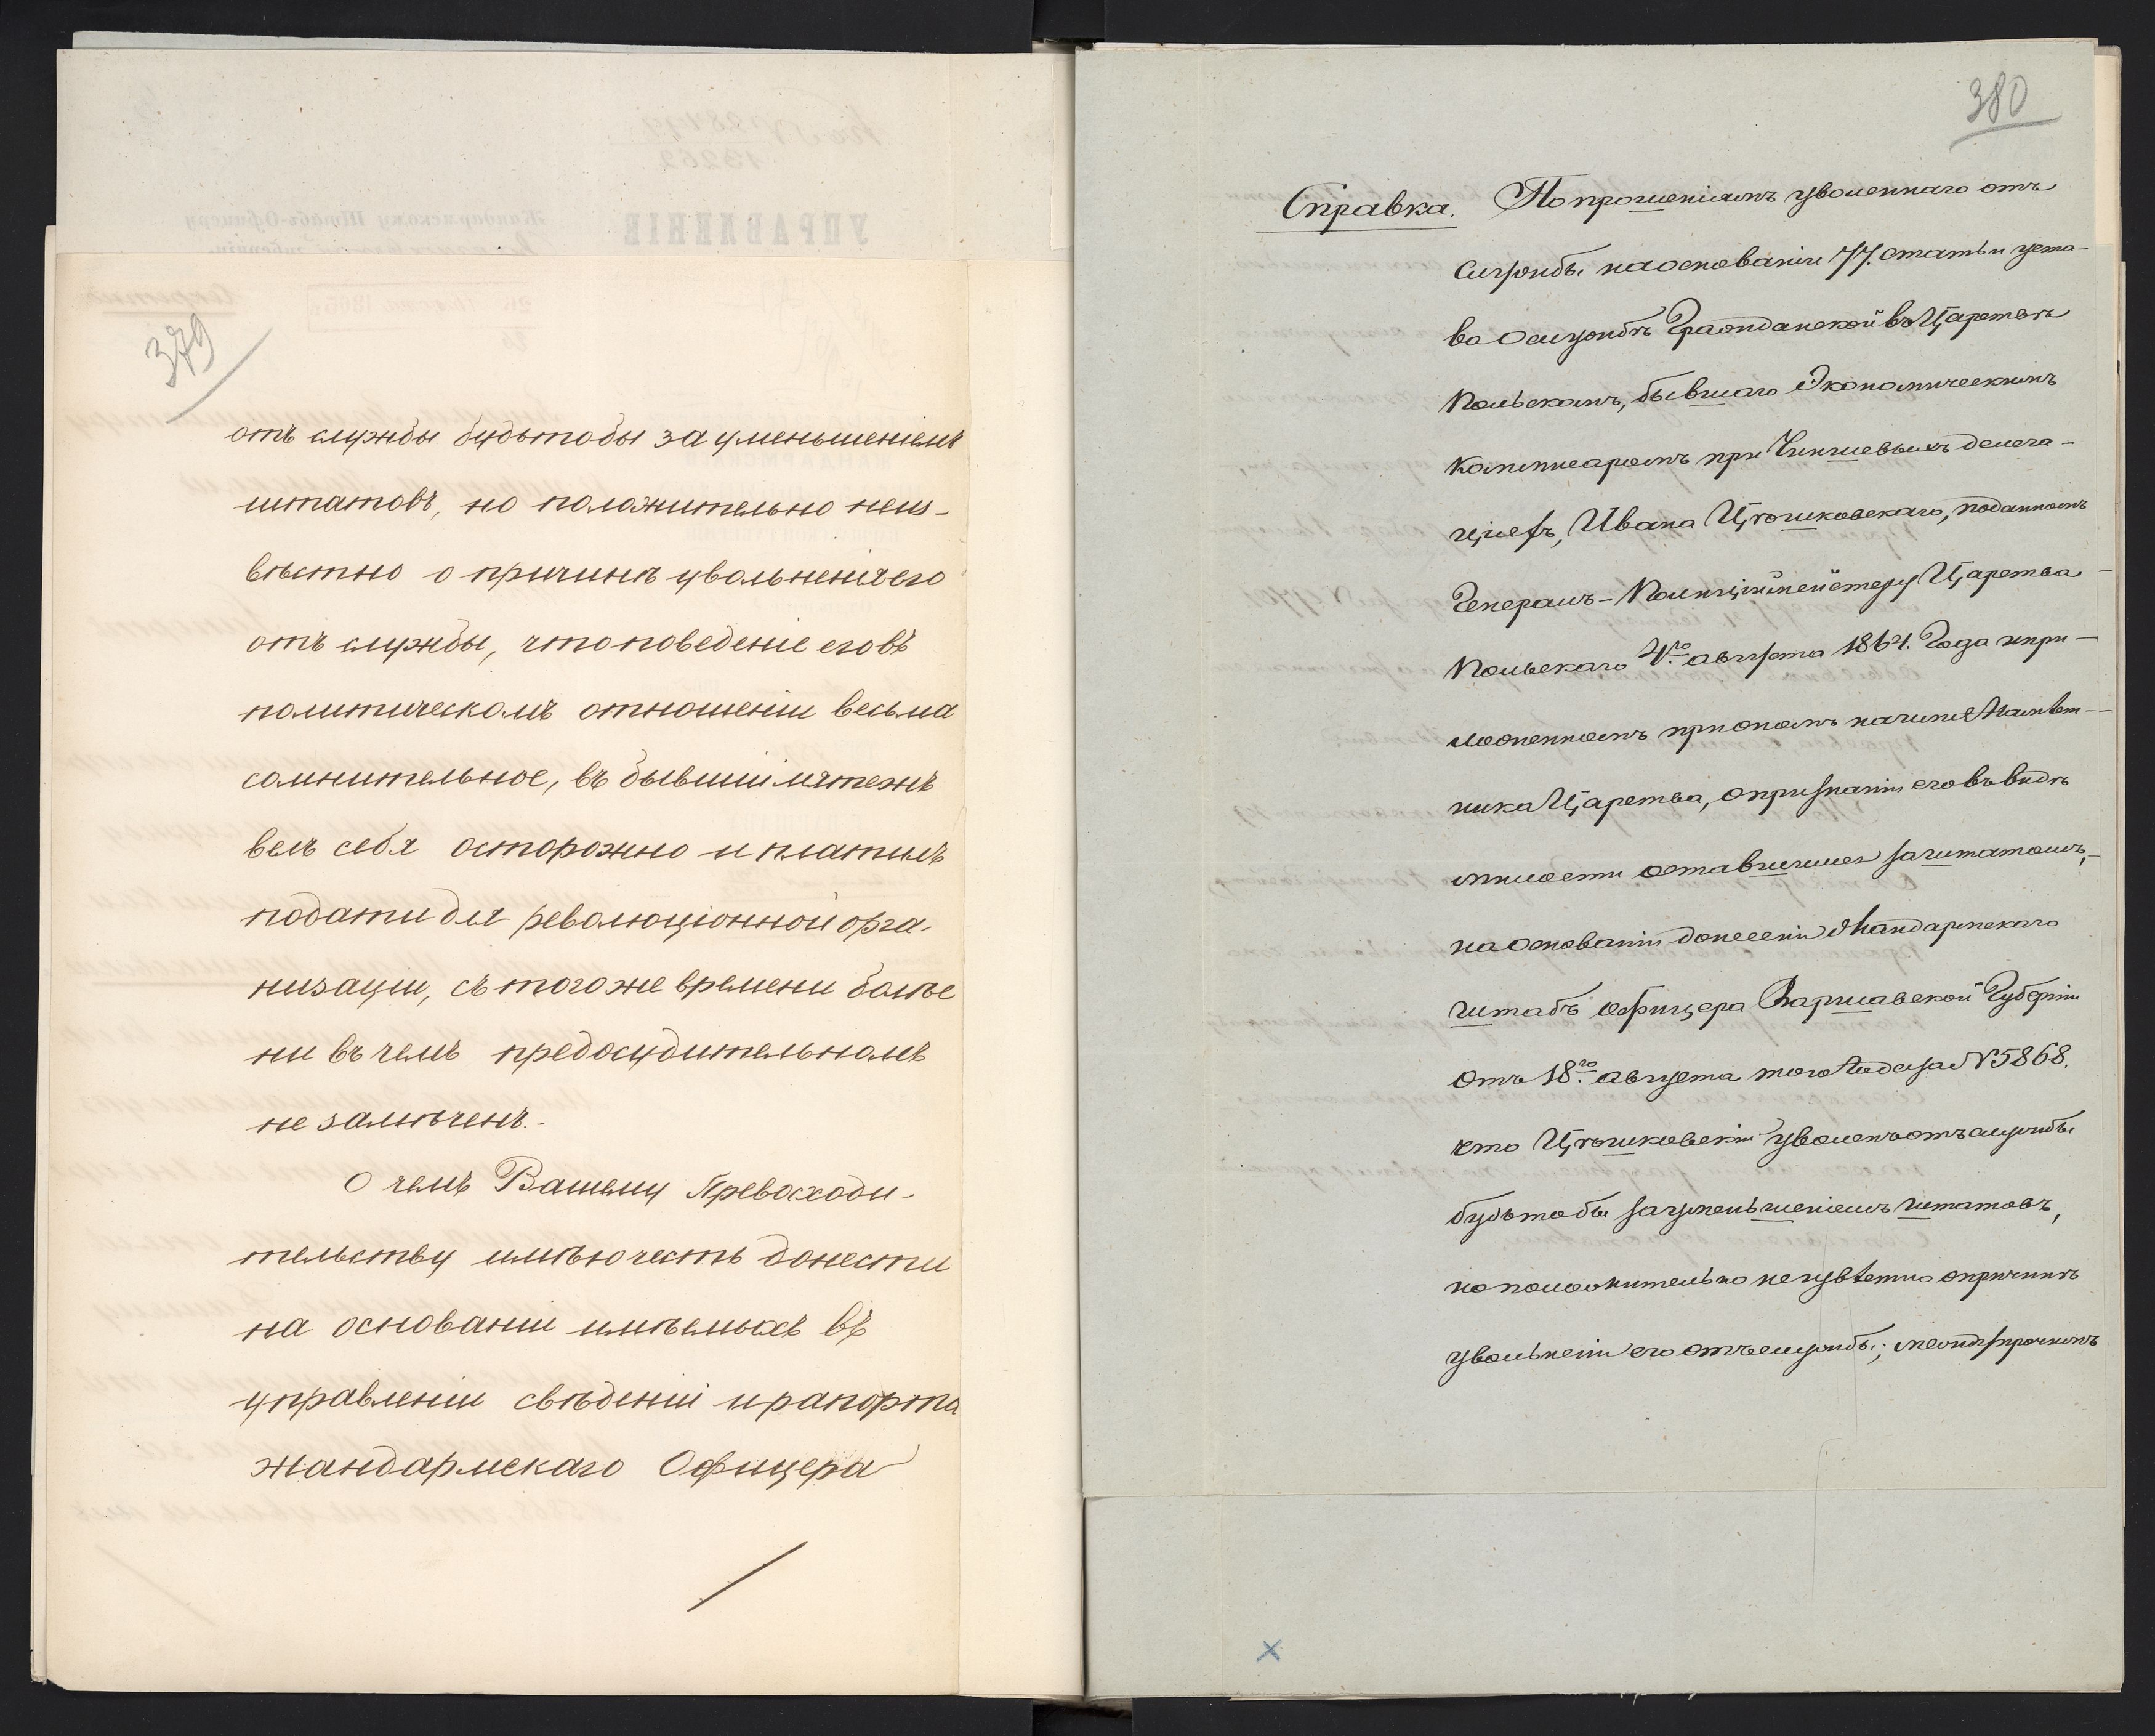 379
отъ службы будьтобы за уменьшеніемъ
штатовъ, но положительно неиз-
вѣстно о причинѣ увольненія его
отъ службы, что поведеніе его въ
политическомъ отношеніи весьма
сомнительное, въ бывшій мятежъ
велъ себя осторожно и платилъ
подати для революціонной орга-
низаціи, съ того же времени болѣе
ни въ чемъ предосудительномъ
не замѣченъ.-
О чемъ Вашему Превосходи-
тельству имѣю честь донести
на основаніи имѣемыхъ въ
управленіи свѣденій и рапорта
жандармскаго Офицера
380
Справка. По прошеніямъ уволеннаго отъ
службы на основаніи 77. статьи уста-
ва о службѣ Гражданской въ Царствѣ
Польскомъ, бывшаго Экономическимъ
Коммисаромъ при Чиншевыхъ делега-
ціяхъ, Ивана Цѣшковскаго, поданномъ
Генералъ-Полиціймейстеру Царства
Польскаго 4.го августа 1864. Года и при-
ложенномъ при ономъ на имя Намѣст-
ника Царства, о признаніи его въ видѣ
милости оставшимся за штатомъ,-
на основаніи донесенія Жандармскаго
штабъ офицера Варшавской Губерніи
отъ 18.го августа того года за № 5868.
что Цѣшковскій уволенъ отъ службы
будьтобы за уменьшеніемъ штатовъ,
но положительно неизвѣстно о причинѣ
увольненія его отъ службы; между прочимъ